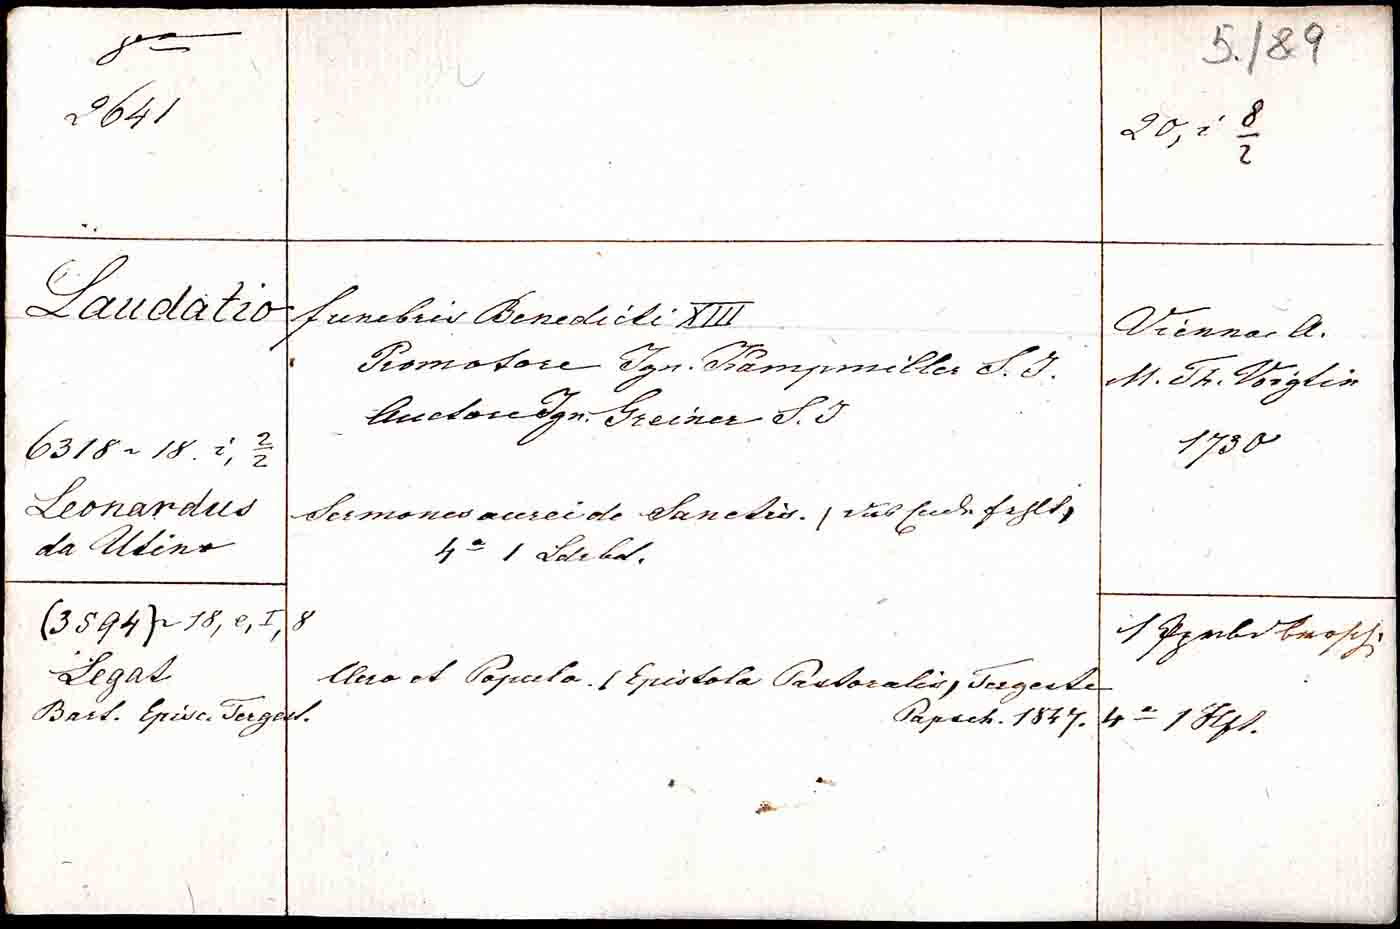 5./89
2641
20, i 8/2
Laudatio funebris Benedicti XIII
Promotore Ign. Kampmiller S. J.
Auctore Ign. Greiner S. J
Viennae A.
M. Th. Voigtin
1730
6318 ~ 18. i, 2/2
Leonardus
da Utino
Sermones aurei de Sanctis.
4° 1 Ldrbd.
(3594) ~ 18, e, I, 8
Legat
Bart. Episc. Tergest.
Clero et Populo. / Epistola Pastoralis, Tergeste
Papsch. 1847. 4° 1 Hft.